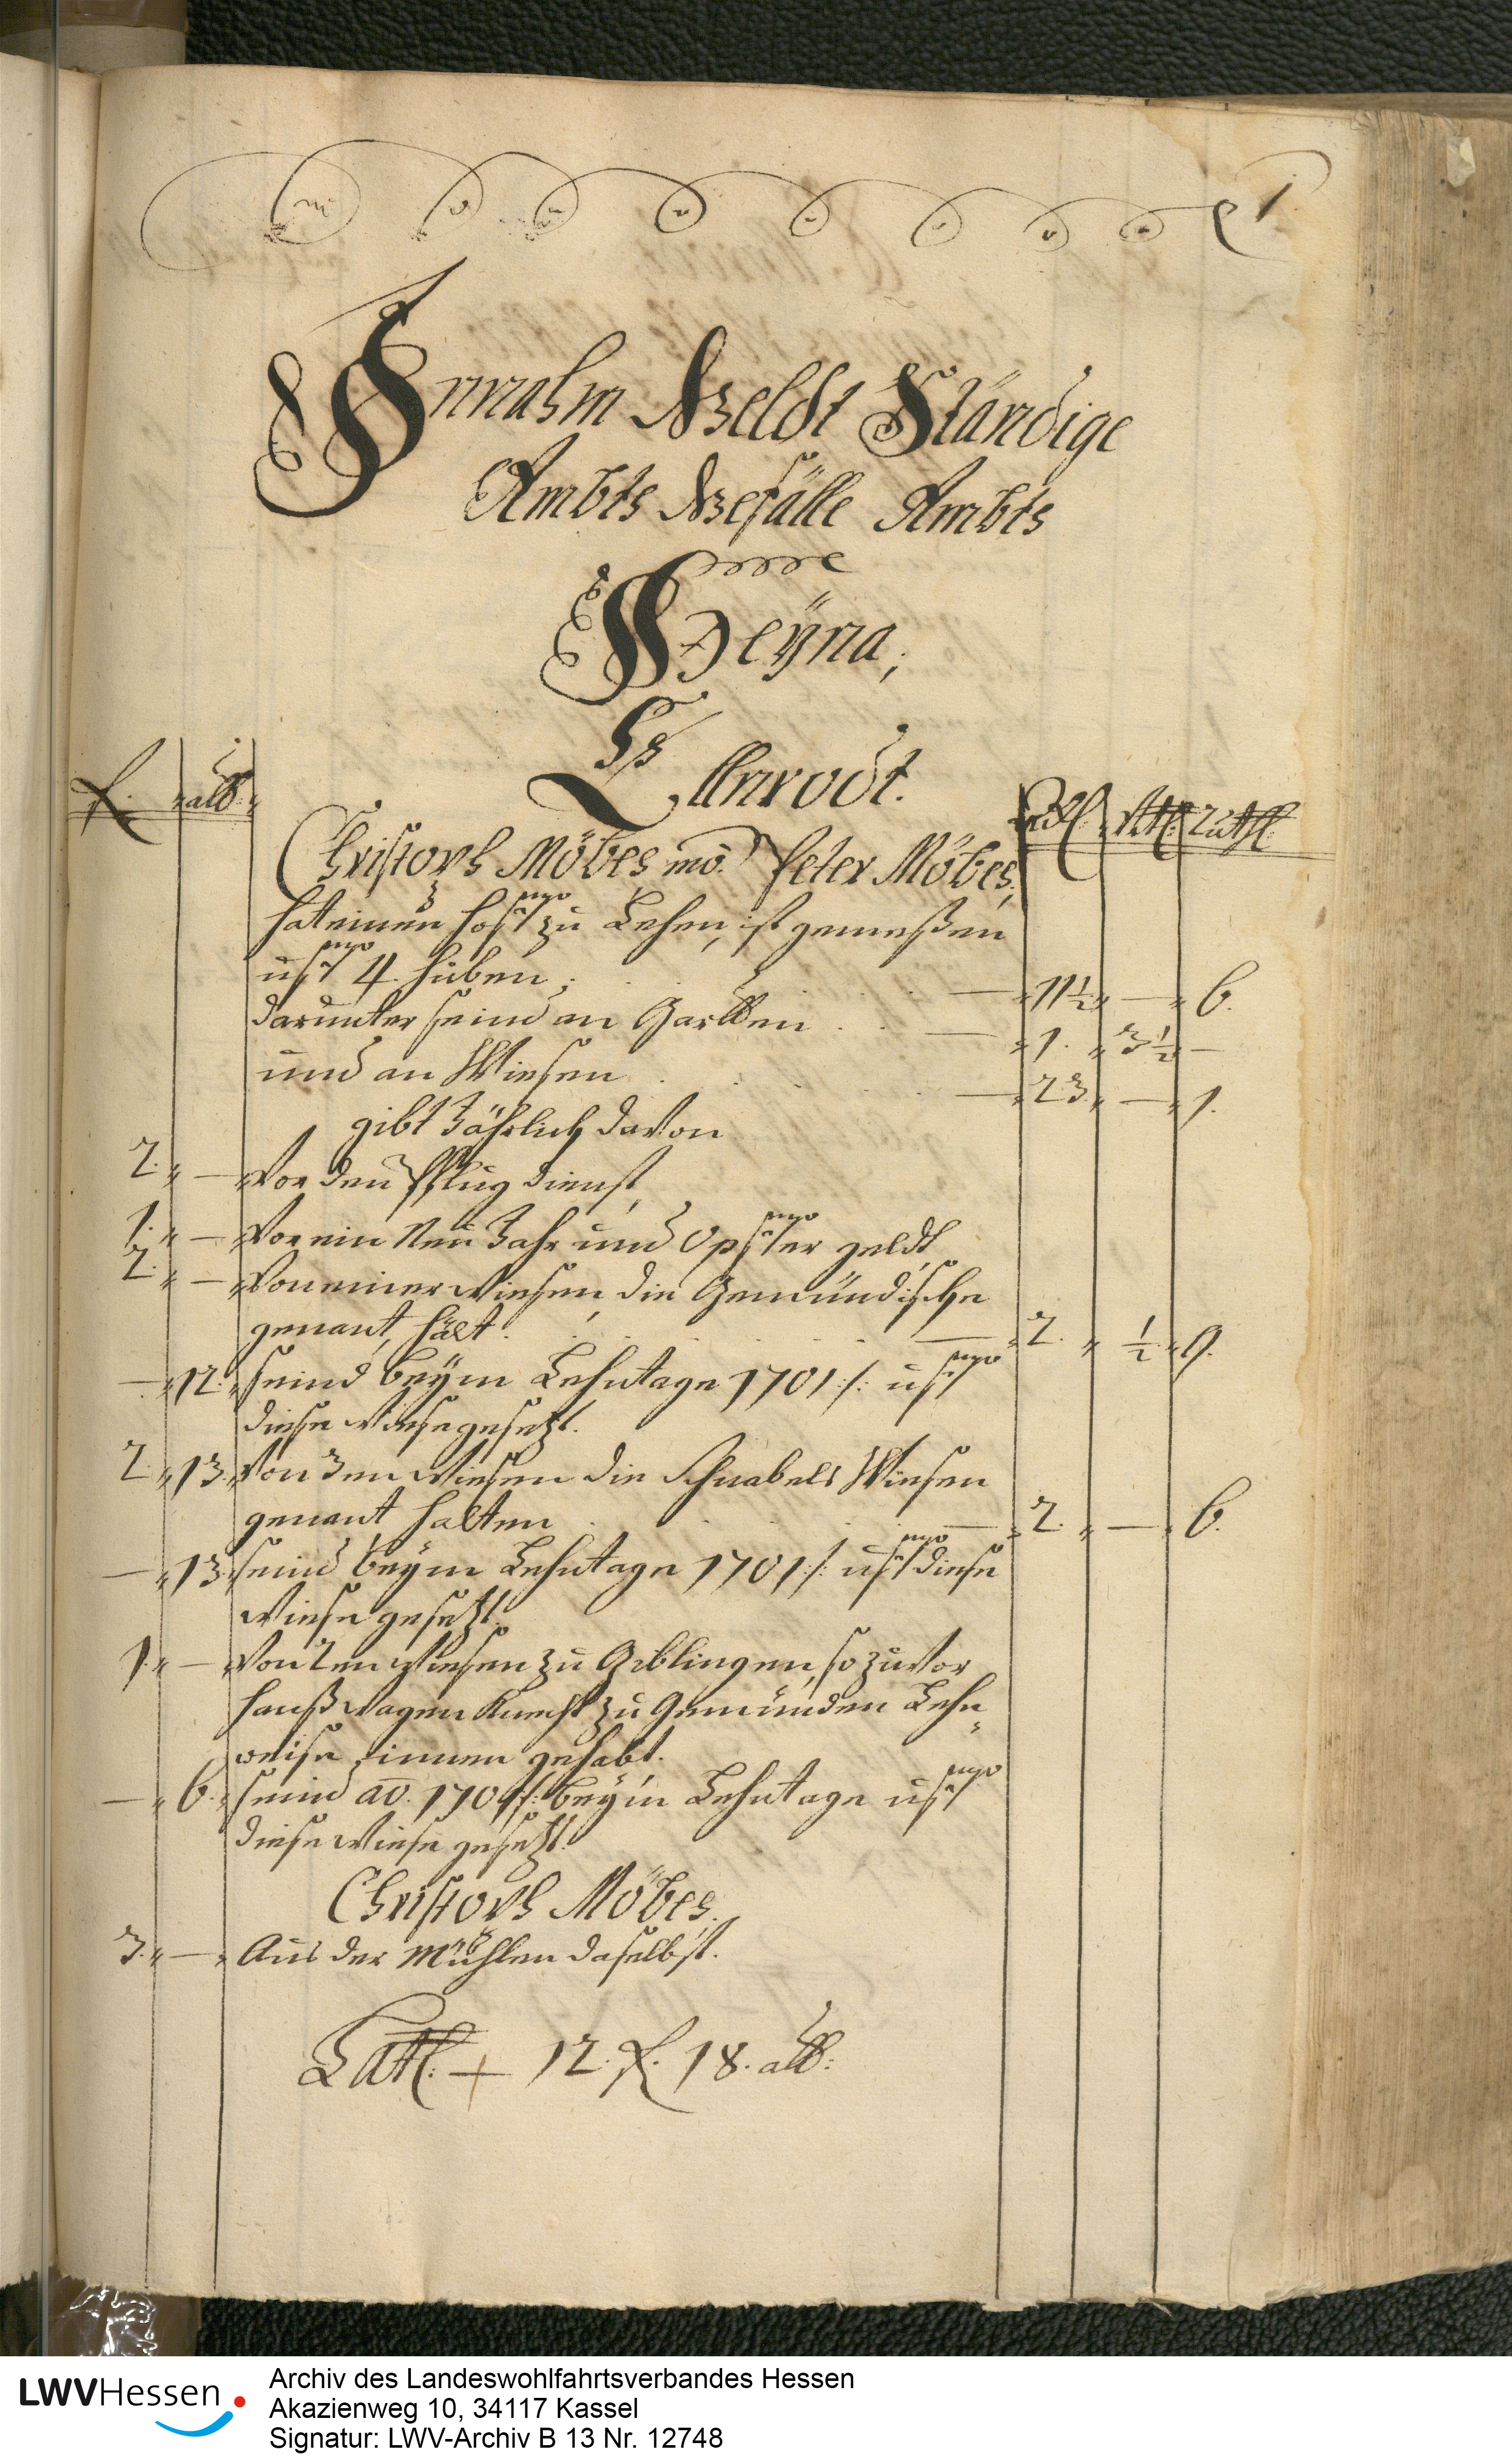 1
Innahm Geldt Ständige
Ambts Gefälle Ambts
Heÿna,
Ellnrodt.
fl. alb:
Christoph Möbes mo. Peter Möbes,
hat einen Hoff zu Lehen, ist gemeßen
uff 4 huben, . . . — 11½ — 6.
darunter seind an Garthen . . — 1. 3½ —
und an Wiesen . . . — 23 — 1.
gibt Jährlich davon
2. — Vor den Pflug dienst,
1. — Vor ein Neu Jahr und Opffer geldt,
2. — Von einer Wiesen, die Gemündische
genant, hält . . . — 2. ½ 9.
— 12. seind beÿm Lehntage 1701 /: uff
diese Wiese gesetzt.
2. 13. Von 3en Wiesen die Schnabels Wiesen
genant halten . . . — 2. — 6.
— 13. seind beÿm Lehntage 1701 /: uff diese
Wiese gesetzt.
1. — Von 2en Wiesen zu, so zuvor
hanß Wagen Knecht zu Gemünden Lehn
weise innen gehabt.
— 6. seind ao. 1701 /: beÿm Lehntage uff
diese Wiese gesetzt.
Christoph Möbes.
3. — Aus der Mühlen daselbst.
Latl. 12. fl. 18. alb:
LWVHessen
Archiv des Landeswohlfahrtsverbandes Hessen
Akazienweg 10, 34117 Kassel
Signatur: LWV-Archiv B 13 Nr. 12748